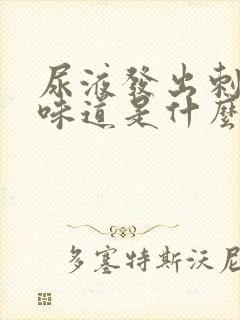 尿液發出刺
味道是什麼
多塞特斯沃尼